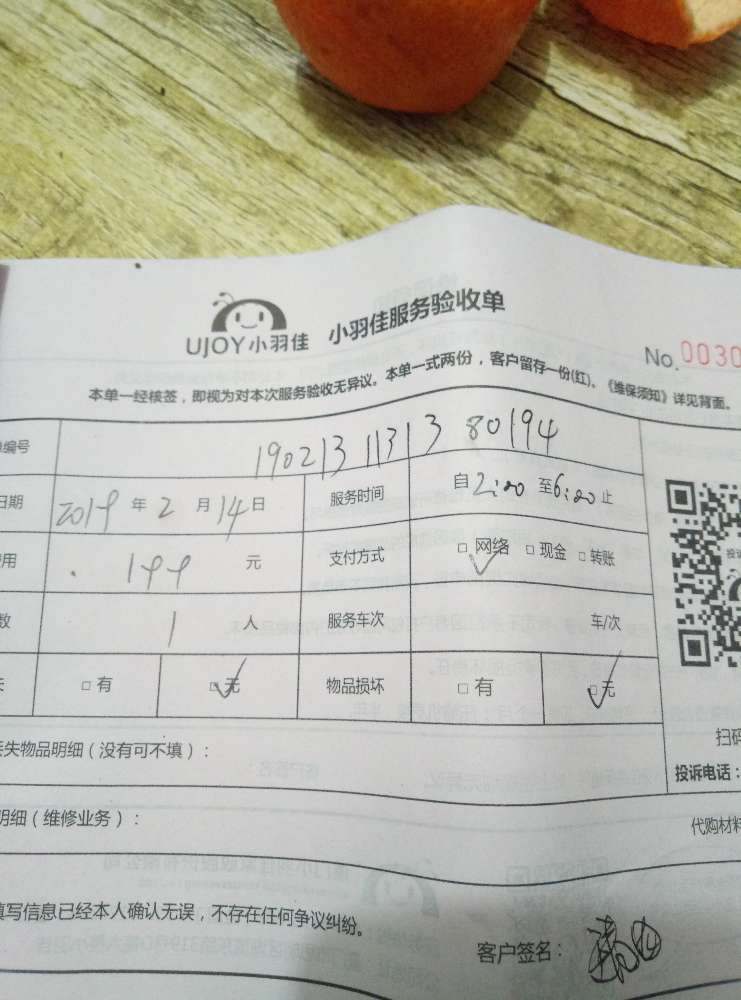 UJOY小羽佳 小羽佳服务验收单
No.0030
本单一经核签，即视为对本次服务验收无异议。本单一式两份，客户留存一份(红)、《维保须知》详见背面。
编号 1902131131380194
日期 2019年2月14日 服务时间 自2:00至6:00止
用 199元 支付方式 □网络 □现金 □转账
数 1人 服务车次 车/次
失 □有 □无 物品损坏 □有 □无
扫码
失物品明细（没有可不填）：
投诉电话：
明细（维修业务）：
代购材料
填写信息已经本人确认无误，不存在任何争议纠纷。
客户签名：